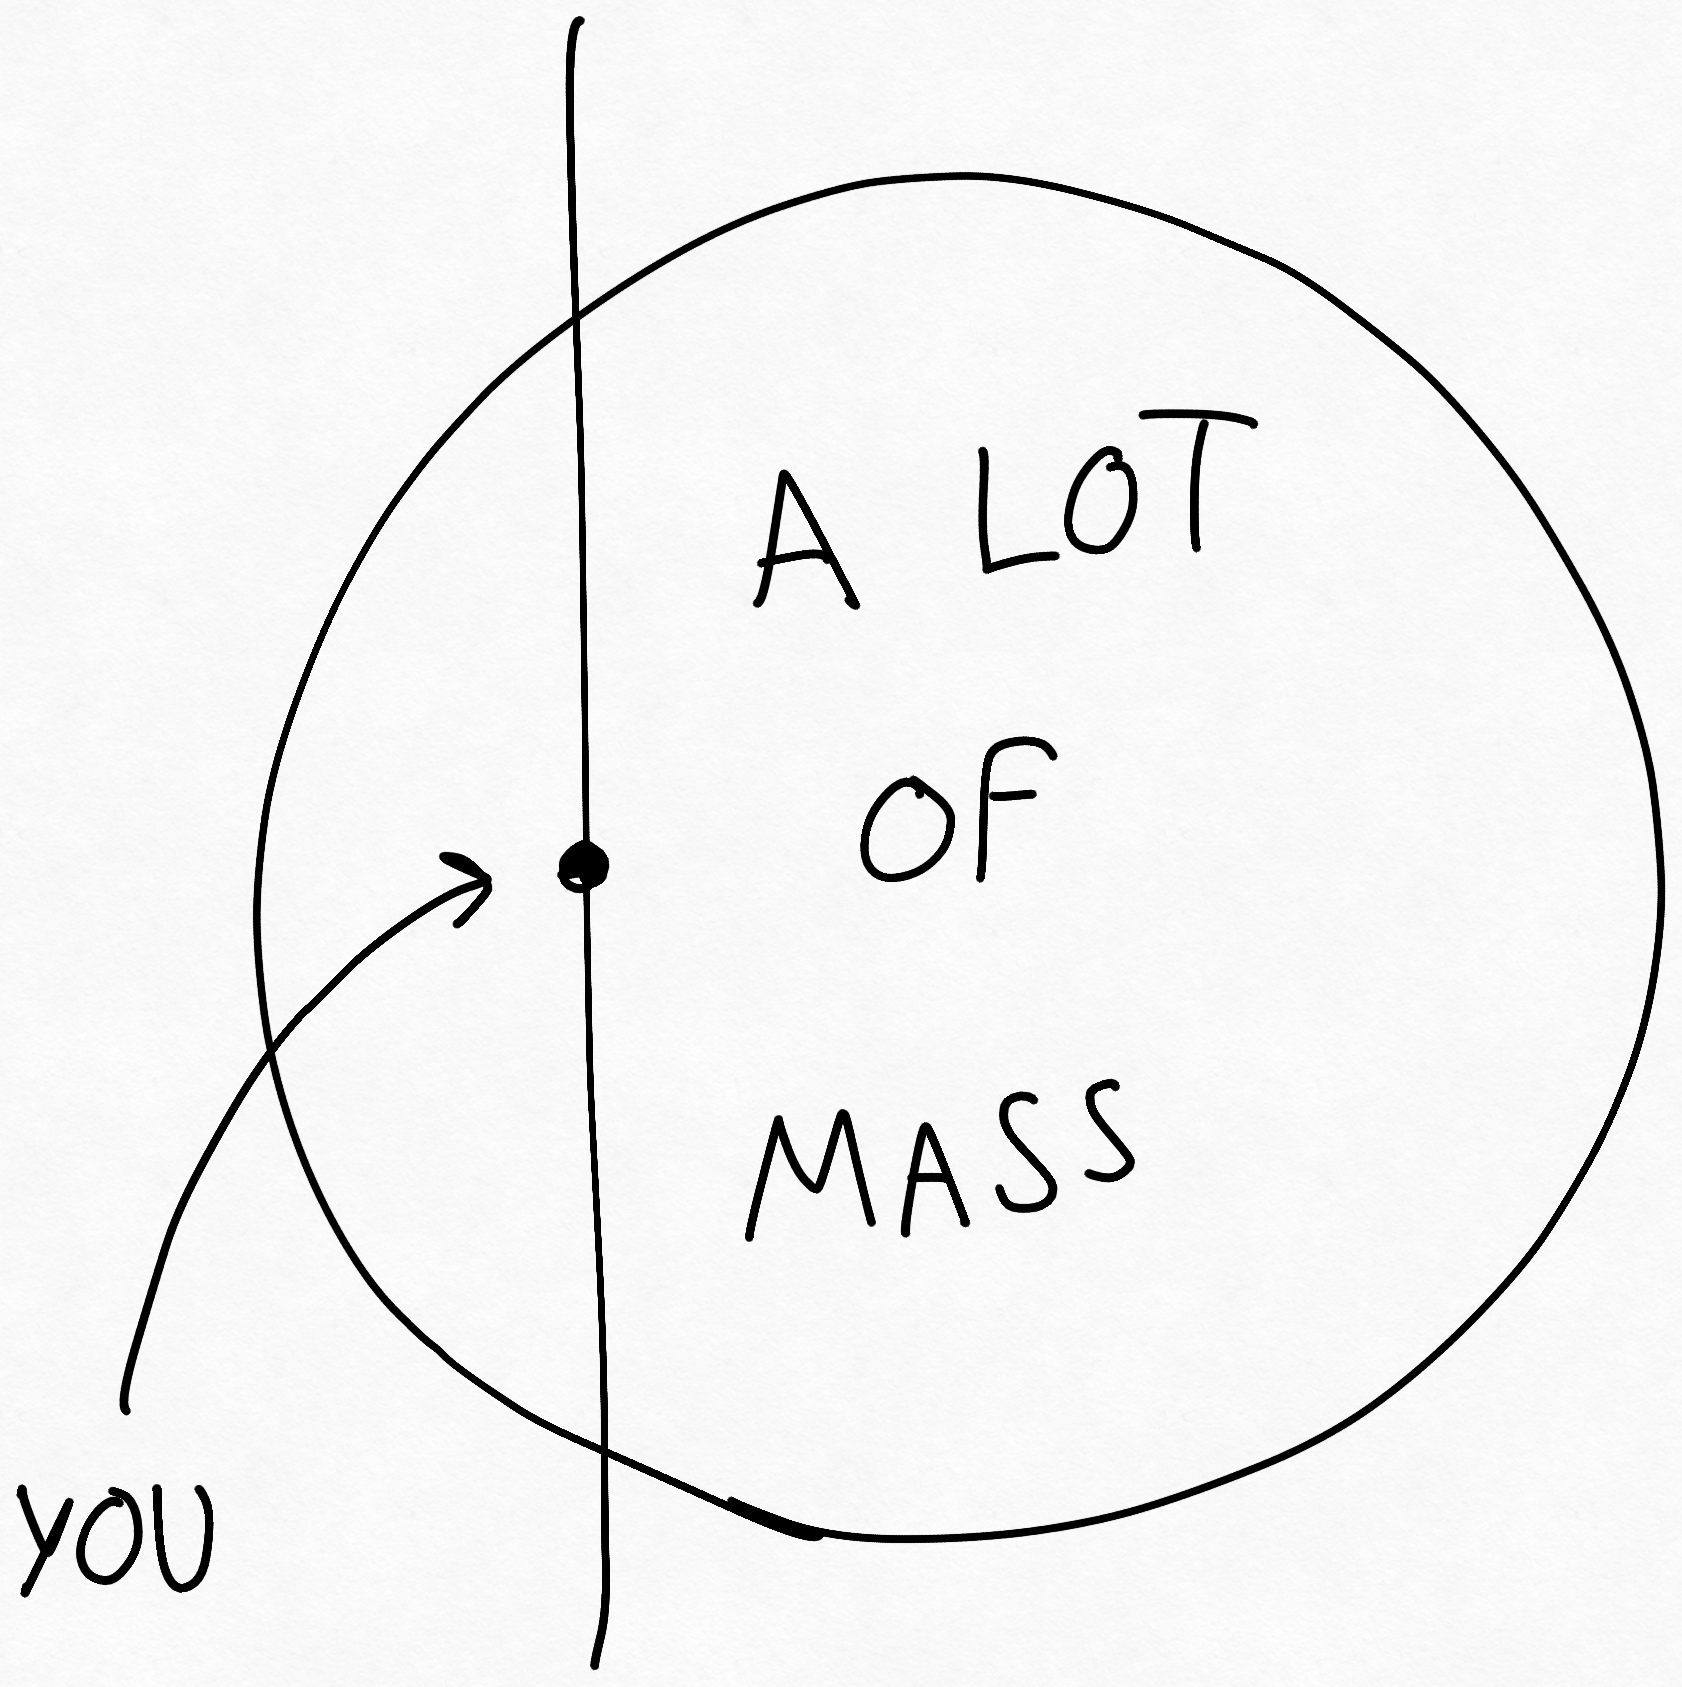 A LOT
OF
MASS
YOU